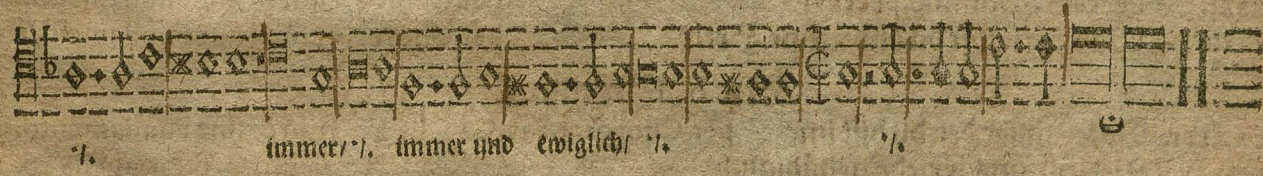 ·/. immer/ ·/. immer und ewiglich/ ·/. ·/.